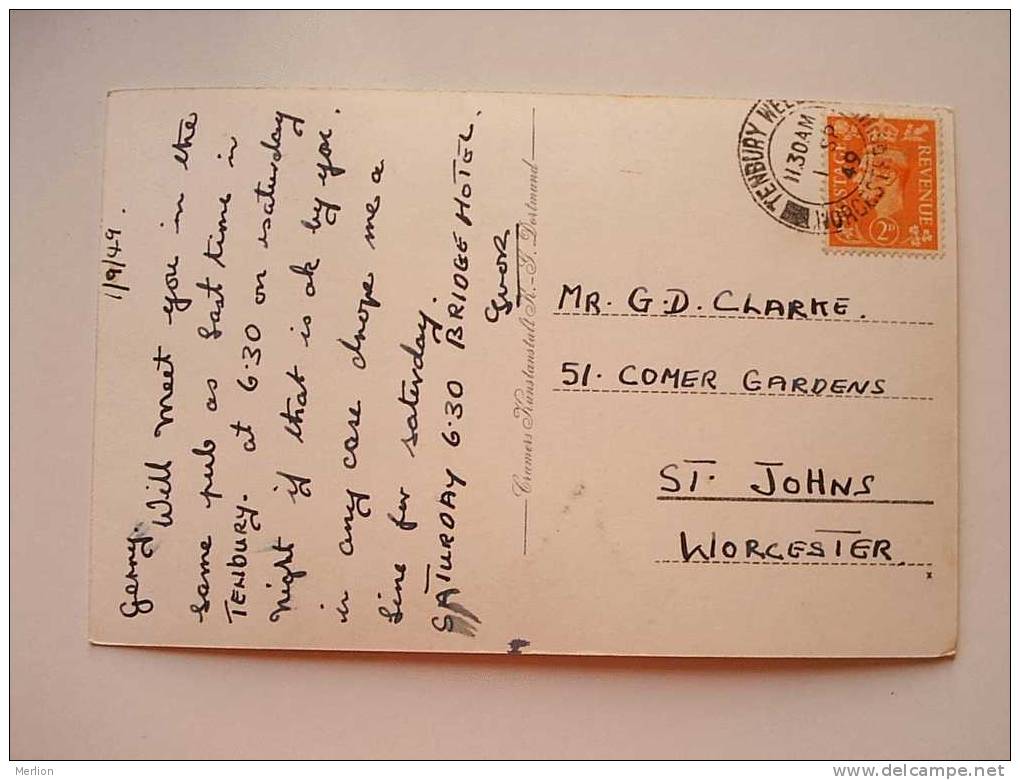 1/9/49.
Gerry.
Will meet you in the
same pub as last time in
TENBURY. at 6.30 on saturday
night if that is ok by you.
in any case drope me a
line for saturday.
SATURDAY 6.30 BRIDGE HOTEL.
Cramers Kunstanstalt K.-G. Dortmund
TENBURY WELL
11.30AM
1 SP
49
WORCESTER
POSTAGE
REVENUE
2D
MR. G.D. CLARKE.
51. COMER GARDENS
ST. JOHNS
WORCESTER.
x
Merlion
delcampe.net